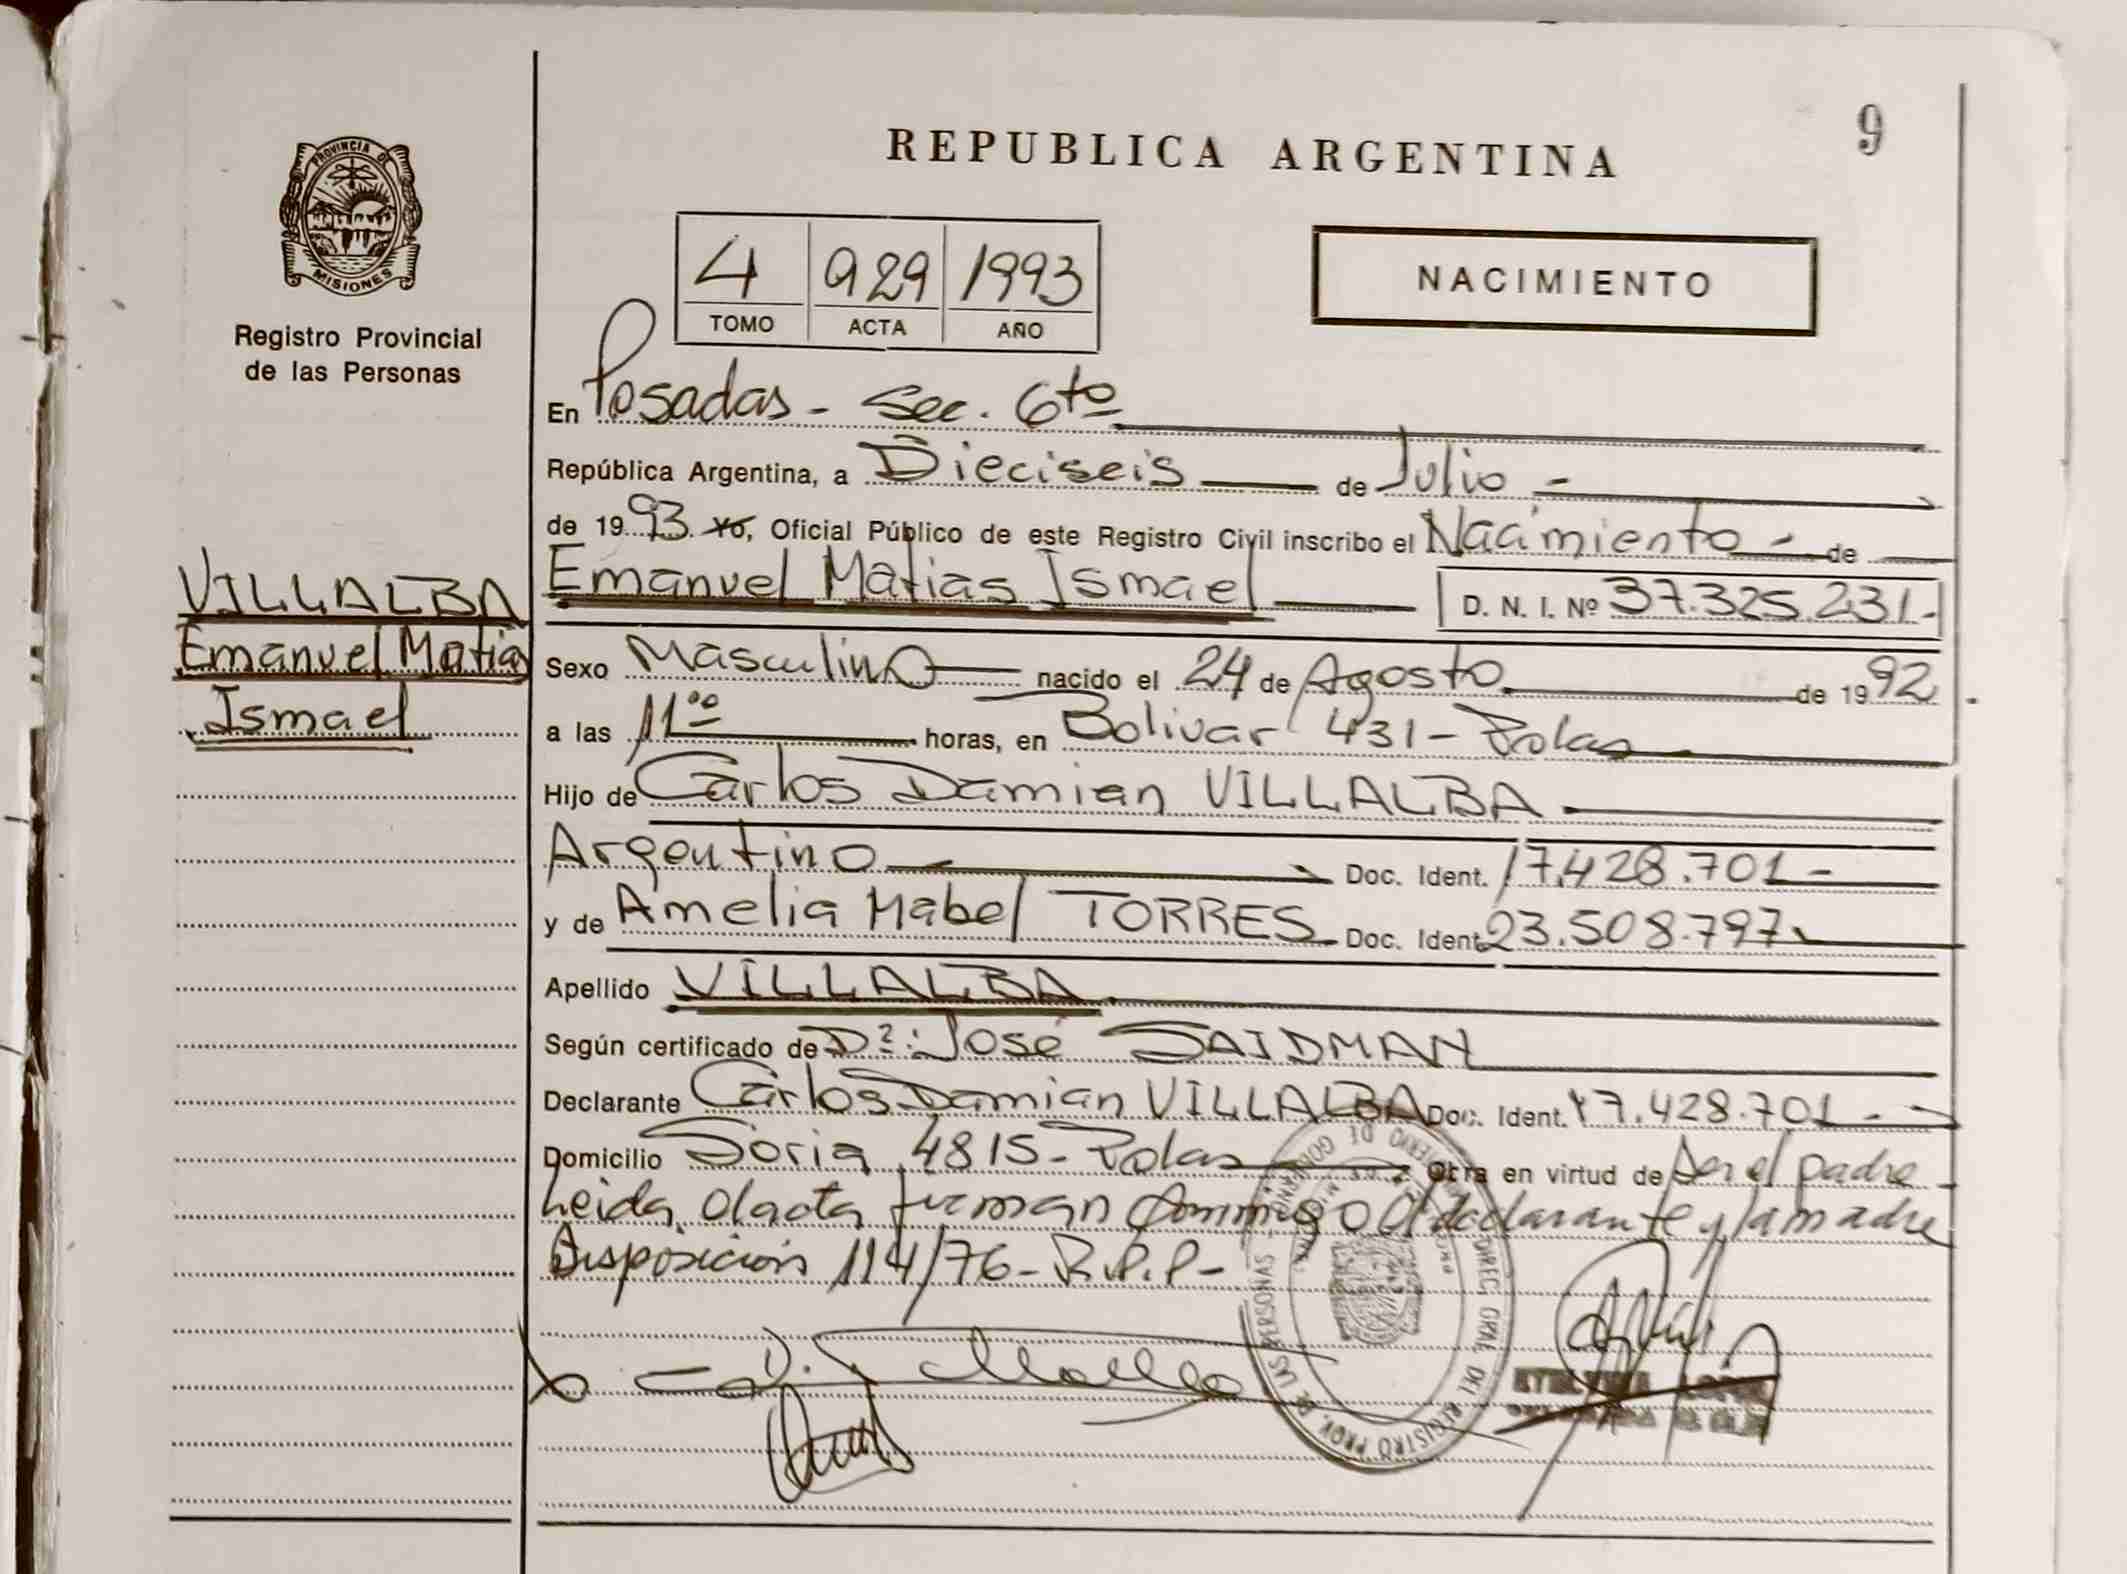 9
REPUBLICA ARGENTINA
PROVINCIA DE
MISIONES
Registro Provincial
de las Personas
4 929 1993
TOMO ACTA AÑO
NACIMIENTO
En Posadas - Sec. 6to
República Argentina, a Dieciseis de Julio -
de 1993 Yo, Oficial Público de este Registro Civil inscribo el Nacimiento - de
VILLALBA
Emanuel Matias
Ismael
Emanuel Matias Ismael D. N. I. Nº 37.325.231.-
Sexo Masculino nacido el 24 de Agosto de 1992
a las 11 00 horas, en Bolivar 431 - Pdas
Hijo de Carlos Damian VILLALBA
Argentino Doc. Ident. 17.428.701 -
y de Amelia Mabel TORRES Doc. Ident. 23.508.797
Apellido VILLALBA
Según certificado de Dr: José SAIDMAN
Declarante Carlos Damian VILLALBA Doc. Ident. 17.428.701 -
Domicilio Soria 4815 - Pdas Obra en virtud de ser el padre
Leida el acta firman conmigo el declarante y la madre
Disposición 114/76 - R.P.P -
GOBIERNO DE
DIREC. GRAL. DEL REGISTRO PROV. DE LAS PERSONAS